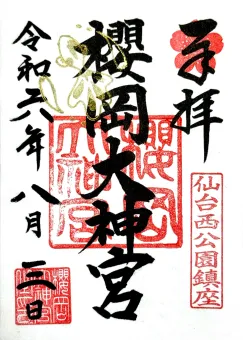 奉拝
仙台西公園鎮座
櫻岡大神宮
櫻岡大神宮
令和六年八月三日